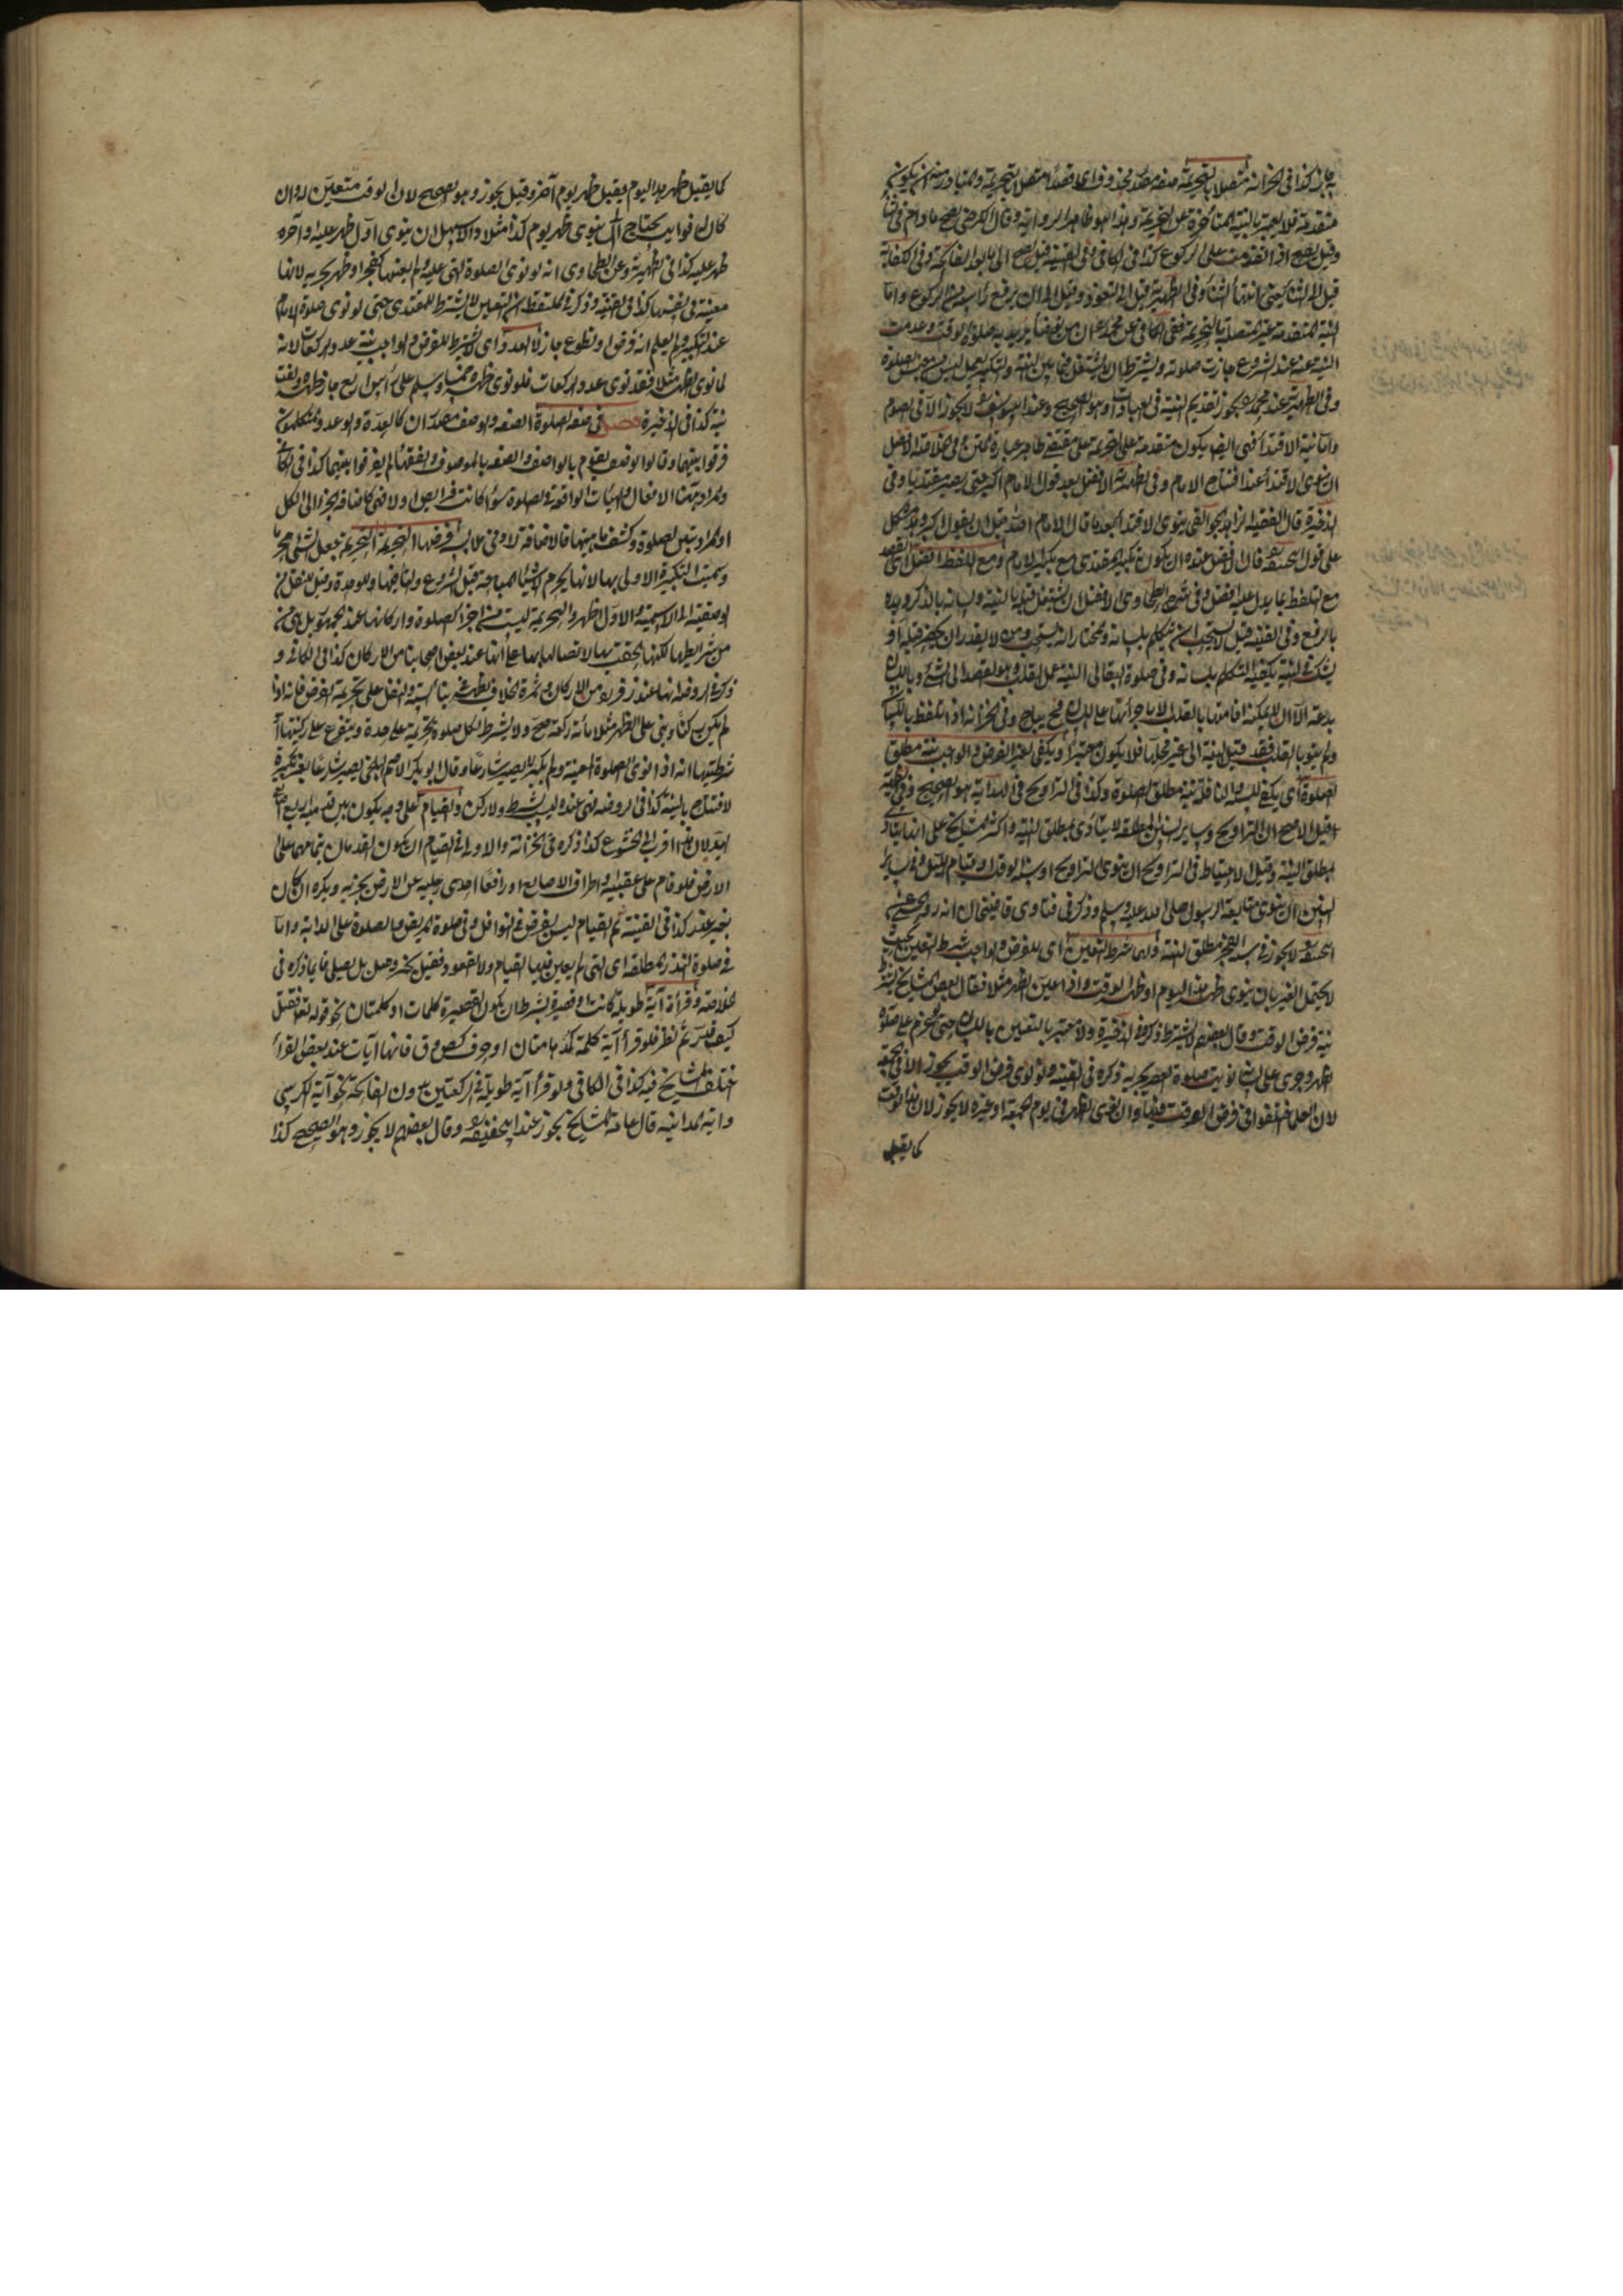 به جاز كذا فى الخزانة متصلا بالتحريمة صفة مصدر محذوف اى قصدا متصلا بالتحريمة والمتبادر منه ان يكون
متقدمة فلا يعتبر بالنية المتأخرة عن التحريمة وهذا هو ظاهر الرواية وقال الكرخى يصح ما دام فى الثنا
وقيل يصح اذا تقدمت على الركوع كذا فى الكافى وفى القنية قيل يصح الى ما بعد الفاتحة وفى الكفاية
قيل الى الثنا يعنى انتهاء الثنا وفى الظهيرية قيل الى التعوذ وقيل الى ان يرفع رأسه من الركوع واما
النية المتقدمة غير المتصلة بالتحريمة ففى الكافى عن محمد ان من توضأ يريد به صلوة الوقت وعدمت
النية عنه عند الشروع جازت صلوته ويشترط ان لا يشتغل فيما بين النية والتكبير بعمل ليس من جنس الصلوة
وفى الظهيرية عند محمد يجوز تقديم النية فى العبادات وهو الصحيح وعند ابى يوسف لا يجوز الا فى الصوم
واما نية الاقتداء فهى ايضا يكون متقدمة على التحريمة على مقتضى ظاهر عبارة المتن وفى الخلاصة الافضل
ان ينوى الاقتداء عند افتتاح الامام وفى الظهيرية الافضل بعد قول الامام اكبر حتى يصير مقتديا وفى
الذخيرة قال الفقيه ينوى الاقتداء بعد ما قال الامام الله قبل ان يقول اكبر
على قول ابى حنيفة فان الافضل عنده ان يكون تكبير المقتدى مع تكبير الامام ومع اللفظ افضل اى القصد
مع التلفظ بما يدل عليه افضل وفى شرح الطحاوى الافضل ان يشتغل قلبه بالنية ولسانه بالذكر ويده
بالرفع وفى القنية قيل لا يستحب ان يتكلم بلسانه والمختار انه يستحب ومن لا يقدر ان يحضر قلبه او
يشك فى النية يكفيه التكلم بلسانه وفى صلوة البقالى النية عمل القلب وهو القصد الى الشئ وباللسان
بدعة الا ان لا يمكنه اقامتها بالقلب الا باجرائها على اللسان فح يباح وفى الخزانة اذا تلفظ باللسان
ولم ينو بالقلب فقد قيل لنية الى غير محلها فلا يكون معتبرا ويكفى لغير الفرض والواجب نية مطلق
الصلوة اى يكفى للسنة والنافلة نية مطلق الصلوة وكذا فى التراويح فى الهداية هو الصحيح وفى القنية
قيل الاصح ان التراويح وساير السنن المطلقة لا يتأدى بمطلق النية واكثر المشايخ على انها يتأدى
بمطلق النية وقيل الاحتياط فى التراويح ان ينوى التراويح او سنة الوقت او قيام الليل وفى ساير
السنن ان ينوى متابعة الرسول صلى الله عليه وسلم وذكر فى فتاوى قاضيخان انه روى الحسن عن
ابى حنيفة لا يجوز فى سنة الفجر مطلق النية ولهما شرط التعيين اى للفرض والواجب شرط التعيين بحيث
لا يحتمل الغير بان ينوى ظهر هذا اليوم او ظهر الوقت واذا عين الظهر مثلا فقال بعض المشايخ يشترط
نية فرض الوقت وقال بعضهم لا يشترط ذكره فى الذخيرة ولا معتبر بالتعيين باللسان حتى لو عزم على صلوة
الظهر وجرى على لسانه نويت صلوة العصر يجزيه ذكره فى القنية ولو نوى فرض الوقت يجوز الا فى الجمعة
لان العلماء اختلفوا فى فرض الوقت فيها وان نوى الظهر فى يوم الجمعة او غيره لا يجوز لان هذا الوقت
كما يقبل
كما يقبل ظهر هذا اليوم يقبل ظهر يوم آخر وقيل يجوز وهو الصحيح لان الوقت متعين له وان
كان لها فوايت يحتاج الى ان ينوى ظهر يوم كذا مثلا والاسهل ان ينوى اول ظهر عليه او آخر
ظهر عليه كذا فى الظهيرية وعن الطحاوى انه لو نوى الصلوة التى عليه ولم يعينها كفجر او ظهر يجزيه لانها
معينة فى نفسها كذا فى القنية وذكر فى الملتقط ان التعيين لا يشترط للمقتدى حتى لو نوى صلوة الامام
عند التكبير ولم يعلم انه فرض او تطوع جاز لا العدد اى لا يشترط للفرض والواجب نية عدد الركعات لانه
لما نوى الظهر مثلا فقد نوى عدد الركعات فلو نوى ظهره خمسا وسلم على رأس الاربع جاز ظهره ولغت
نيته كذا فى الذخيرة فصل فى صفة الصلوة الصفة والوصف مصدران كالعدة والوعد والمتكلمون
فرقوا بينهما وقالوا الوصف يقوم بالواصف والصفة بالموصوف والفقهاء لم يفرقوا بينهما كذا فى الكافى
والمراد هنا الافعال والهيئات الواقعة فى الصلوة سواء كانت فرايض اولا فهى كاضافة الجزء الى الكل
او المراد بيان الصلوة وكشف ماهيتها فالاضافة لادنى ملابسة فرضها التحريمة التحريمة جعل الشئ محرما
وسميت التكبيرة الاولى بها لانها يحرم الاشياء المباحة قبل الشروع والتاء فيها للوحدة وقيل للنقل من
الوصفية الى الاسمية والاول اظهر والتحريمة ليست من اجزاء الصلوة واركانها عند الجمهور بل هى
من شرايطها لكنها الحقت بها لاتصالها بها على انها عند بعض اصحابنا من الاركان كذا فى الكافى و
ذكر فى الروضة انها عند زفر من الاركان وثمرة الخلاف يظهر فى بناء السنة والنفل على تحريمة الفرض فانه اذا
لم يكن ركنا وبنى على الظهر مثلا مائة ركعة صح ولا يشترط لكل صلوة تحريمة على حدة ويتفرع على ركنيتها او
شرطيتها انه اذا نوى الصلوة المعينة ولم يكبر لا يصير شارعا وقال ابو بكر الاصم البلخى يصير شارعا بغير تكبيرة
الافتتاح بالنية كذا فى الروضة فهى عنده ليست بشرط ولا ركن والقيام على وجه يكون بين قدميه اربع اصابع
اليد لان هذا اقرب الى الخشوع كذا ذكره فى الخزانة والاولى فى القيام ان يكون القدمان بتمامهما على
الارض فلو قام على عقبيه او اطراف الاصابع او رافعا احدى رجليه عن الارض يجزيه ويكره ان كان
بغير عذر كذا فى القنية ثم القيام ليس بفرض فى النوافل وفى صلوة المريض والصلوة على الدابة واما
فى صلوة النذر المطلقة اى التى لم يعين فيها القيام ولا القعود فقيل يخير وقيل بل يصلى قايما ذكره فى
الخلاصة وقراءة آية طويلة كانت او قصيرة بشرط ان يكون القصيرة كلمات او كلمتان نحو قوله تعالى فقتل
كيف قدر ثم نظر فلو قرأ آية كلمة كمدهامتان او حرف كص وق فانها آيات عند بعض القراء
اختلف المشايخ فيه كذا فى الكافى ولو قرأ آية طويلة فى ركعتين سوى الفاتحة نحو آية الكرسى
وآية المداينة قال عامة المشايخ يجوز عند ابى حنيفة وقال بعضهم لا يجوز وهو الصحيح كذا